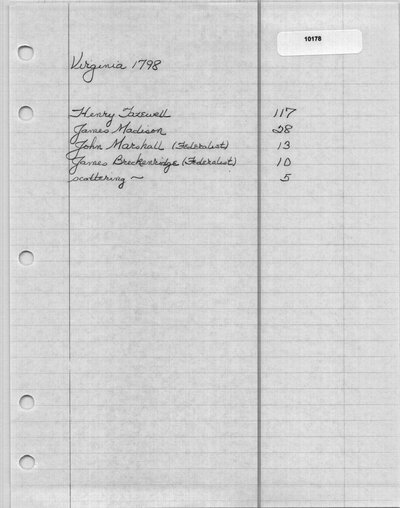 10178
Virginia 1798
Henry Tazewell 117
James Madison 28
John Marshall (Federalist) 13
James Breckenridge (Federalist) 10
scattering ~ 5